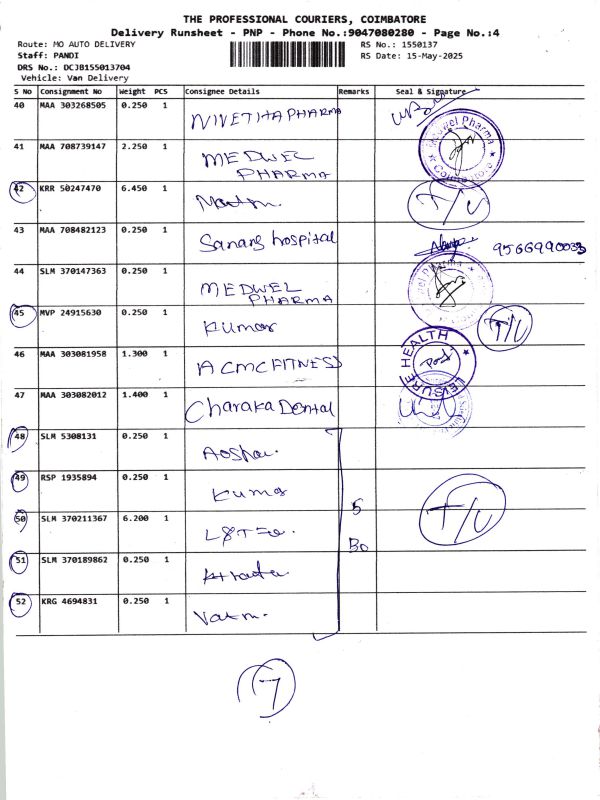 THE PROFESSIONAL COURIERS, COIMBATORE
Delivery Runsheet - PNP - Phone No.:9047080280 - Page No.:4
Route: MO AUTO DELIVERY
RS No.: 1550137
Staff: PANDI
RS Date: 15-May-2025
DRS No.: DC3B155013704
Vehicle: Van Delivery
S No Consignment No Weight PCS Consignee Details Remarks Seal & Signature
40 MAA 303268505 0.250 1 NIVETHA PHARMA
41 MAA 708739147 2.250 1 MEDWEL PHARMA
42 KRR 50247470 6.450 1 T/U
43 MAA 708482123 0.250 1 Sanans hospital 9566990033
44 SLM 370147363 0.250 1 MEDWEL PHARMA
45 MVP 24915630 0.250 1 Kumar T/U
46 MAA 303081958 1.300 1 ACMC FITNESS LEISURE HEALTH
47 MAA 303082012 1.400 1 Charaka Dental
48 SLM 5308131 0.250 1
49 RSP 1935894 0.250 1 Kumar 5
50 SLM 370211367 6.200 1 T/U
51 SLM 370189862 0.250 1
52 KRG 4694831 0.250 1
7